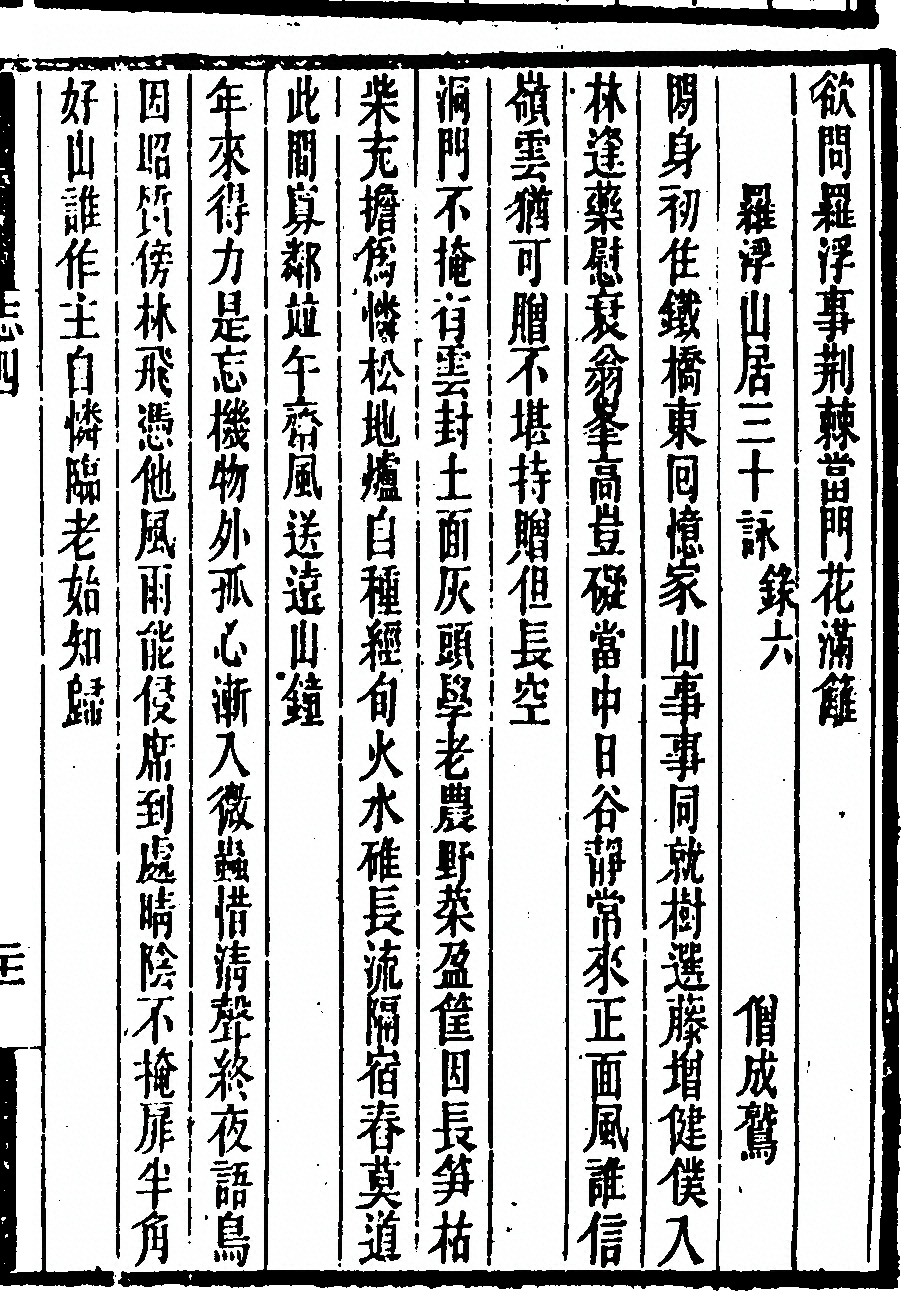 欲問羅浮事荆棘當門花滿籬
羅浮山居三十詠錄六 僧成鷲
閒身初住鐵橋東回憶家山事事同就樹選藤增健僕入
林逢藥慰衰翁峯高豈礙當中日谷靜常來正面風誰信
嶺雲猶可贈不堪持贈但長空
洞門不掩有雲封土面灰頭學老農野菜盈筐因長笋枯
柴充擔爲憐松地爐自種經旬火水碓長流隔宿舂莫道
此間寡鄰並午齋風送遠山鐘
年來得力是忘機物外孤心漸入微蟲惜清聲終夜語鳥
因昭質傍林飛憑他風雨能侵席到處晴陰不掩扉半角
好山誰作主自憐臨老始知歸
志四